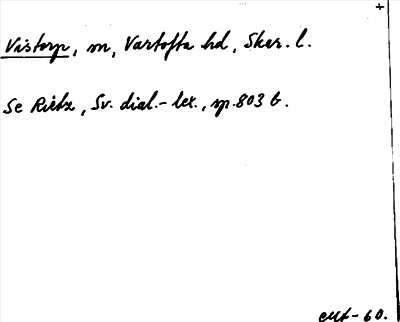 +
Vistorp, m, Vartofta hd, Skar. l.
Se Rietz, Sv. dial.-lex., sp. 803 b.
-60.